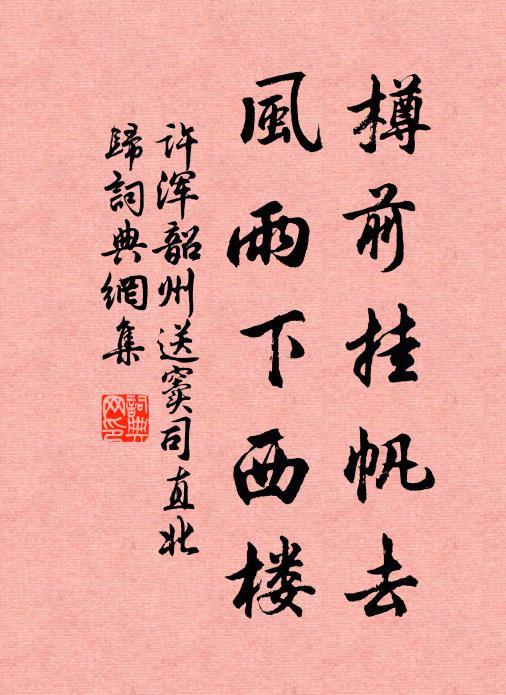 樽前挂帆去
風雨下西楼
许浑韶州送窦司直北
歸詞典網集
詞典
网印